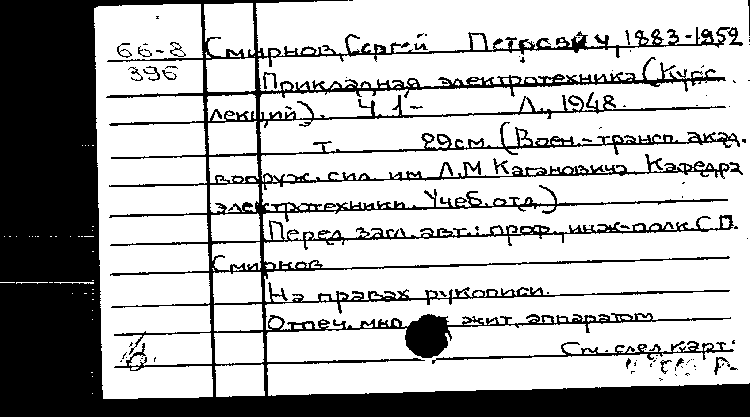 66-8 Смирнов, Сергей Петрович, 1883-1952
396
Прикладная электротехника (Курс
лекций). Ч. 1- Л., 1948.
т. 29см. (Воен.-трансп. акад.
вооруж. сил им Л.М Кагановича. Кафедра
электротехники. Учеб. отд.)
Перед загл. авт.: проф., инж-полк. С.П.
Смирнов
На правах рукописи.
Отпеч. мно жит. аппаратом
См. след. карт.